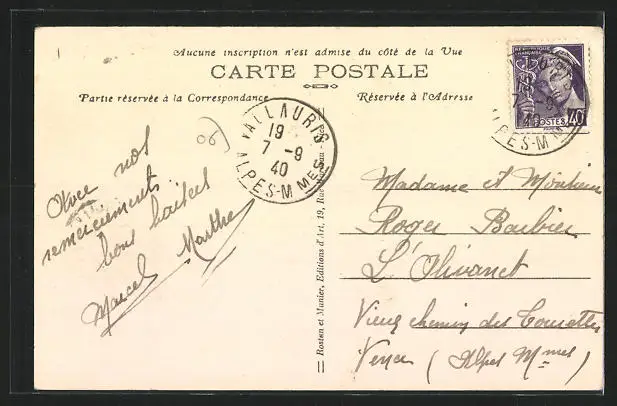 Aucune inscription n'est admise du côté de la Vue
CARTE POSTALE
Partie réservée à la Correspondance
Réservée à l'Adresse
06
VALLAURIS
19
7 -9
40
ALPES-M MES
RÉPUBLIQUE FRANÇAISE
POSTES 40
7 -9
40
ALPES-M M
Avec nos
remerciements
bons baisers
Marcel Marthe
Rostan et Munier, Editions d'Art, 19, Rue
Madame et Monsieur
Roger Barbier
L'Olivanet
Vieux chemin des
Vence (Alpes Mmes)